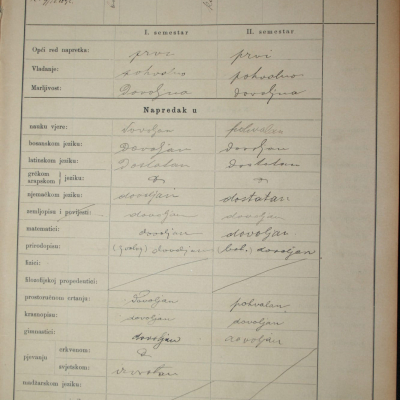 I. semestar II. semestar
Opći red napretka: prvi prvi
Vladanje: pohvalno pohvalno
Marljivost: Dovoljna dovoljna
Napredak u
nauku vjere: dovoljan pohvalan
bosanskom jeziku: Dovoljan dovoljan
latinskom jeziku: Dostatan dostatan
grčkom
arapskom jeziku:
njemačkom jeziku: dovoljan dostatan
zemljopisu i povijesti: dovoljan dovoljan
matematici: dovoljan dovoljan
prirodopisu: dovoljan dovoljan
fizici:
filozofijskoj propedeutici:
prostoručnom crtanju: Dovoljan pohvalan
krasnopisu: dovoljan dovoljan
gimnastici: dovoljan dovoljan
pjevanju crkvenom:
svjetskom:
mađžarskom jeziku: